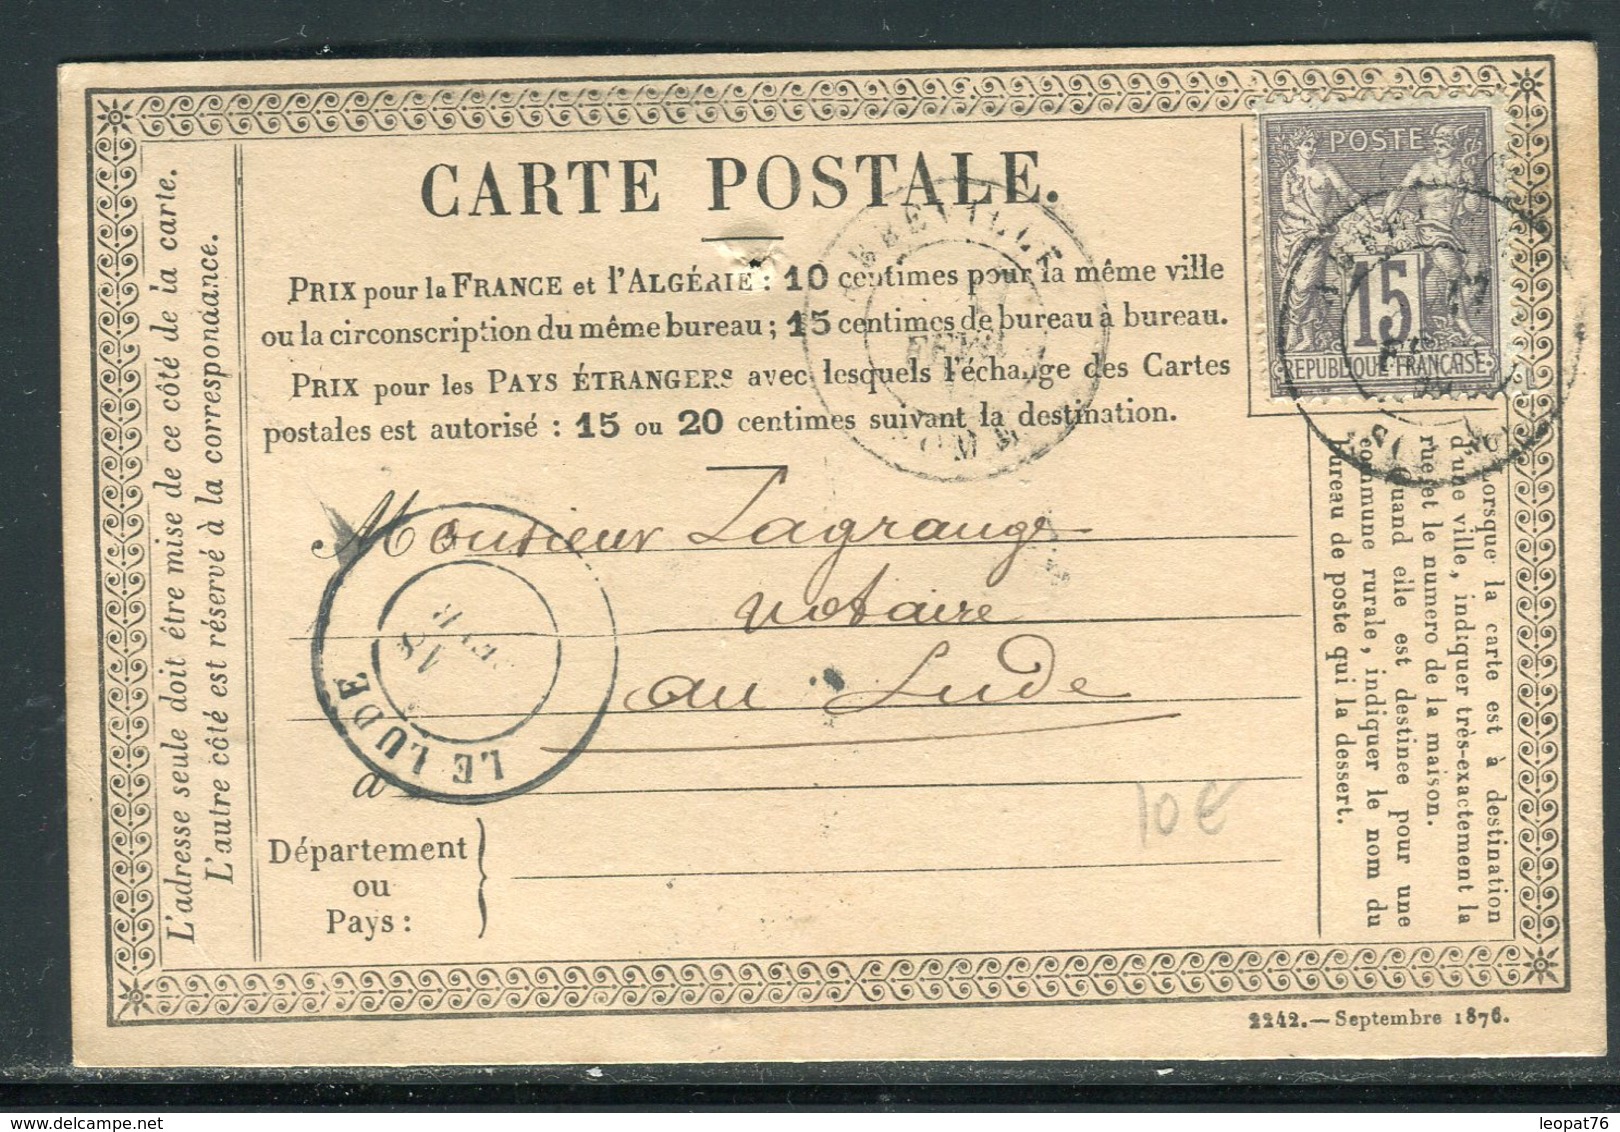 CARTE POSTALE.
PRIX pour la FRANCE et l'ALGÉRIE : 10 centimes pour la même ville
ou la circonscription du même bureau ; 15 centimes de bureau à bureau.
PRIX pour les PAYS ÉTRANGERS avec lesquels l'échange des Cartes
postales est autorisé : 15 ou 20 centimes suivant la destination.
POSTE
15
REPUBLIQUE FRANÇAISE
ABBEVILLE
FEVR
SOMME
Monsieur Lagrange
Notaire
au Lude
à
Département
ou
Pays :
LE LUDE
18
10€
L'adresse seule doit être mise de ce côté de la carte.
L'autre côté est réservé à la correspondance.
Lorsque la carte est à destination
d'une ville, indiquer très-exactement la
rue et le numero de la maison.
Quand elle est destinee pour une
commune rurale, indiquer le nom du
bureau de poste qui la dessert.
2242. — Septembre 1876.
leopat76